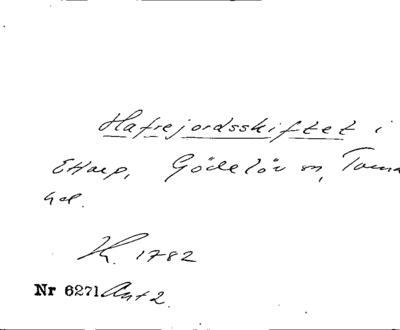 Hafrejordsskiftet i
Ettarp, Gödelöv sn, Torna
hd.
K. 1782
Nr 6271 Ant 2.